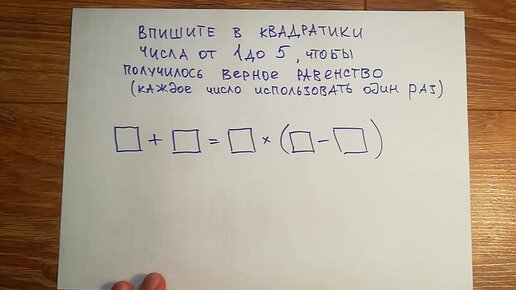 ВПИШИТЕ В КВАДРАТИКИ
ЧИСЛА ОТ 1 ДО 5, ЧТОБЫ
ПОЛУЧИЛОСЬ ВЕРНОЕ РАВЕНСТВО
(КАЖДОЕ ЧИСЛО ИСПОЛЬЗОВАТЬ ОДИН РАЗ)
□ + □ = □ × (□ − □)